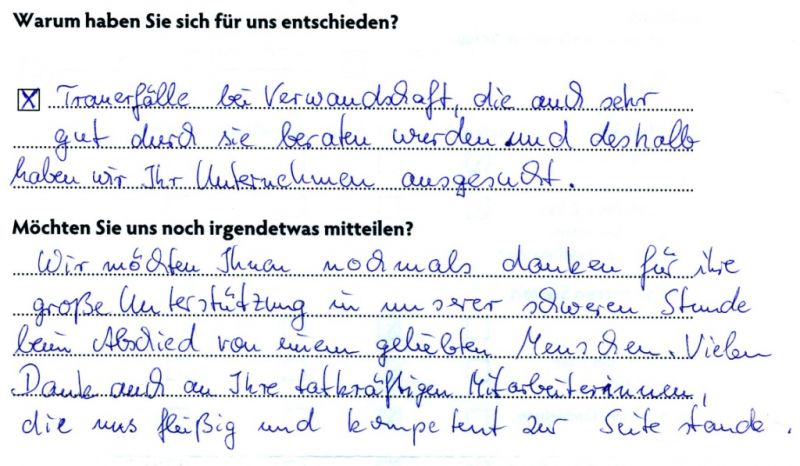 Warum haben Sie sich für uns entschieden?
Trauerfälle bei Verwandschaft, die auch sehr
gut durch sie beraten wurden und deshalb
haben wir Ihr Unternehmen ausgesucht.
Möchten Sie uns noch irgendetwas mitteilen?
Wir möchten Ihnen nochmals danken für ihre
große Unterstützung in unserer schweren Stunde
beim Abschied von einem geliebten Menschen. Vielen
Dank auch an Ihre tatkräftigen Mitarbeiterinnen,
die uns fleißig und kompetent zur Seite stande.